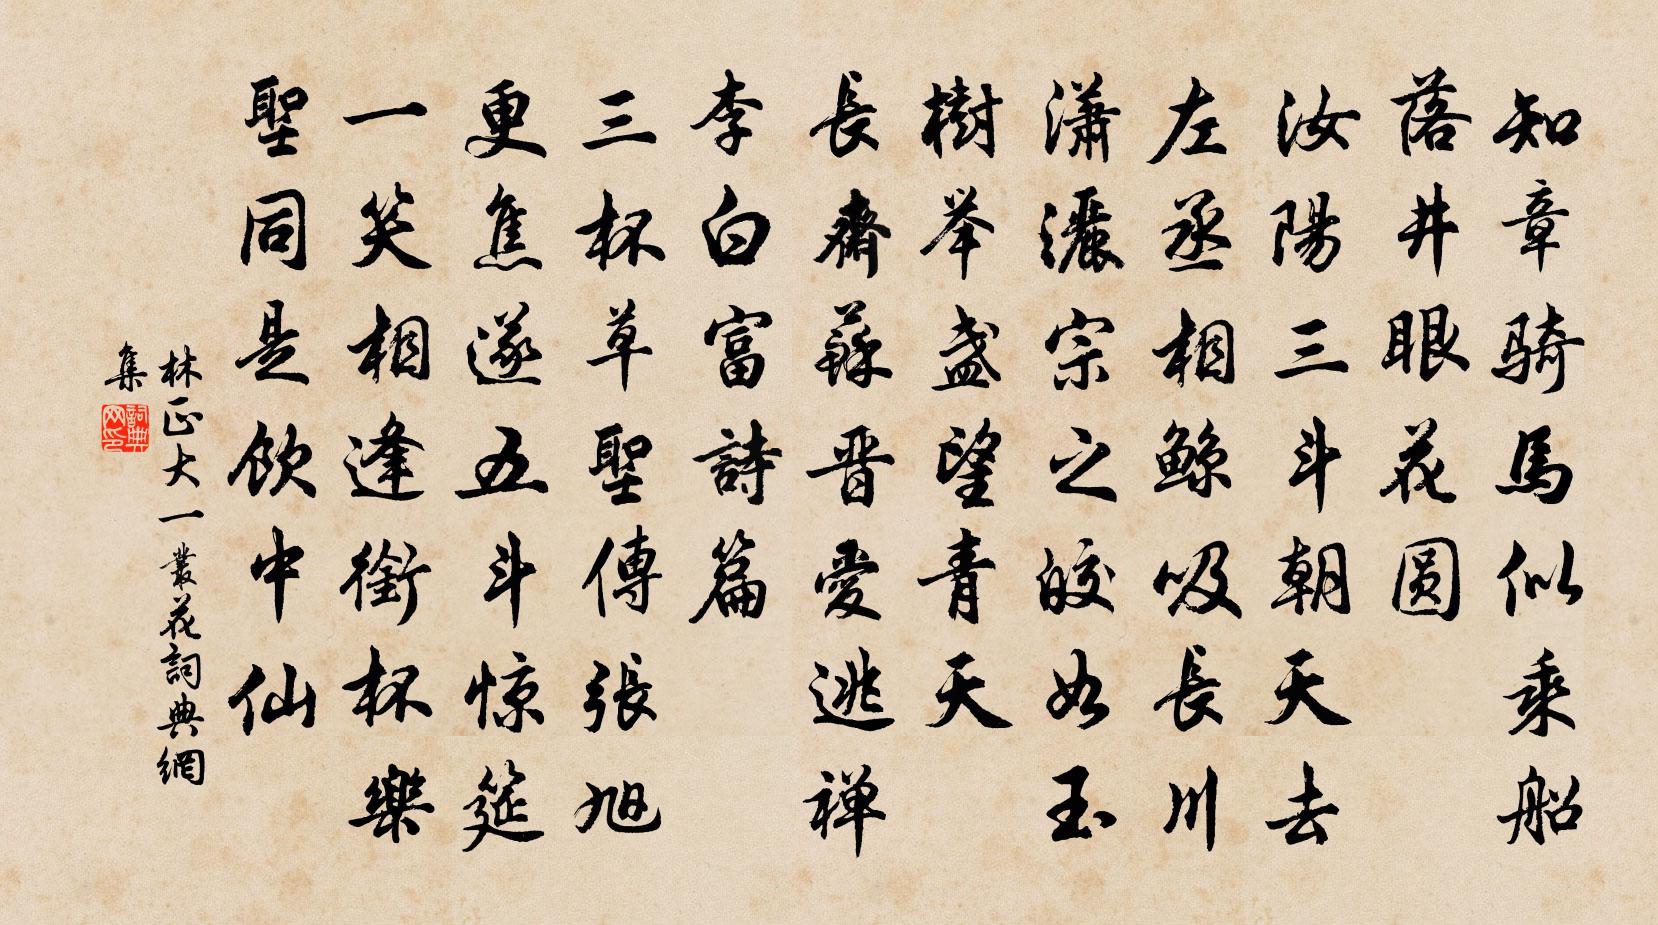 知章骑馬似乘船
落井眼花圆
汝陽三斗朝天去
左丞相鲸吸長川
瀟灑宗之皎如玉
樹举盏望青天
長齋蘇晋愛逃禅
李白富詩篇
三杯草聖傳張旭
更焦遂五斗惊筵
一笑相逢銜杯樂
聖同是飲中仙
林正大一叢花詞典網
集
詞典
网印